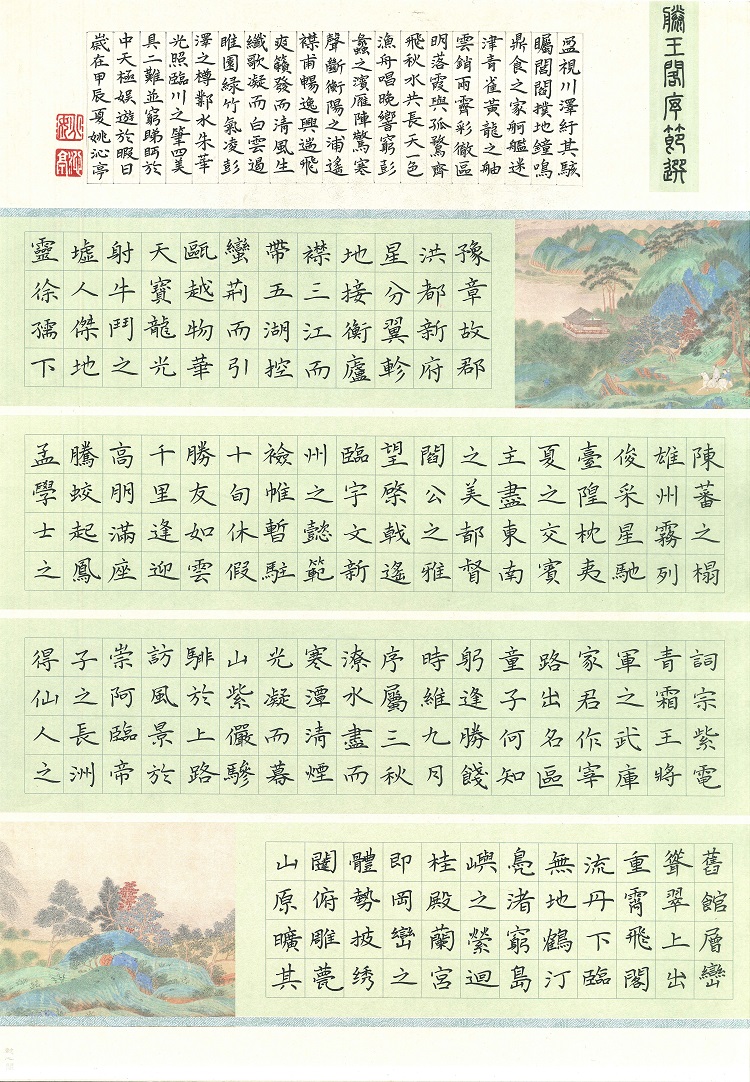 滕王閣序節選
盈視川澤紆其駭
矚閭閻撲地鐘鳴
鼎食之家舸艦迷
津青雀黃龍之舳
雲銷雨霽彩徹區
明落霞與孤鶩齊
飛秋水共長天一色
漁舟唱晚響窮彭
蠡之濱雁陣驚寒
聲斷衡陽之浦遙
襟甫暢逸興遄飛
爽籟發而清風生
纖歌凝而白雲遏
睢園綠竹氣凌彭
澤之樽鄴水朱華
光照臨川之筆四美
具二難並窮睇眄於
中天極娛遊於暇日
歲在甲辰夏姚沁亭
豫章故郡
洪都新府
星分翼軫
地接衡廬
襟三江而
帶五湖控
蠻荊而引
甌越物華
天寶龍光
射牛鬥之
墟人傑地
靈徐孺下
陳蕃之榻
雄州霧列
俊采星馳
臺隍枕夷
夏之交賓
主盡東南
之美都督
閻公之雅
望棨戟遙
臨宇文新
州之懿範
襜帷暫駐
十旬休假
勝友如雲
千里逢迎
高朋滿座
騰蛟起鳳
孟學士之
詞宗紫電
青霜王將
軍之武庫
家君作宰
路出名區
童子何知
躬逢勝餞
時維九月
序屬三秋
潦水盡而
寒潭清煙
光凝而暮
山紫儼驂
騑於上路
訪風景於
崇阿臨帝
子之長洲
得仙人之
舊館層巒
聳翠上出
重霄飛閣
流丹下臨
無地鶴汀
鳧渚窮島
嶼之縈迴
桂殿蘭宮
即岡巒之
體勢披绣
闥俯雕甍
山原曠其